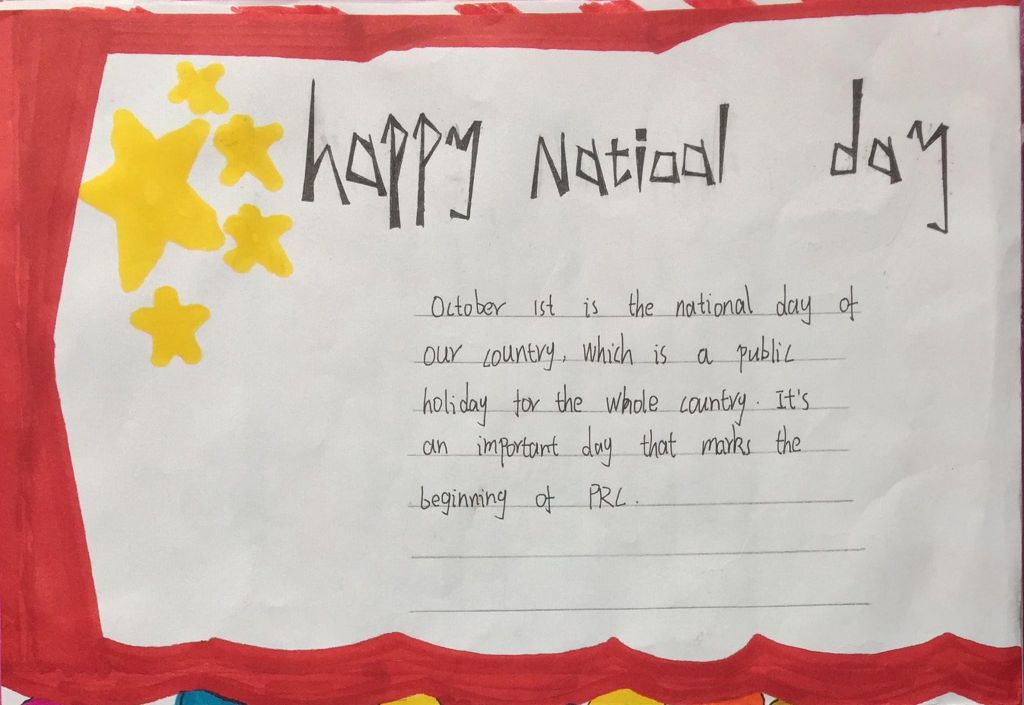 happy Natioal day
October 1st is the national day of
our country, which is a public
holiday for the whole country. It's
an important day that marks the
beginning of PRC.